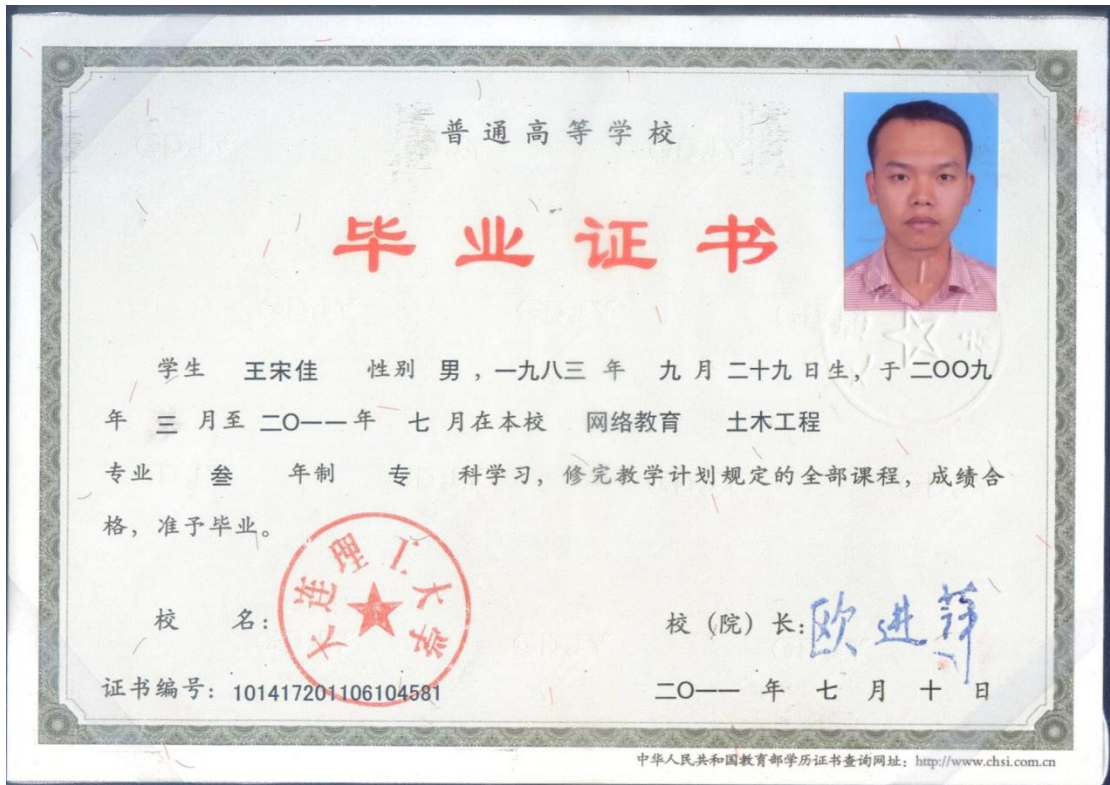 普通高等学校
毕业证书
学生 王宋佳 性别 男，一九八三 年 九 月 二十九 日生，于 二〇〇九
年 三 月至 二〇一一 年 七 月在本校 网络教育 土木工程
专业 叁 年制 专 科学习，修完教学计划规定的全部课程，成绩合
格，准予毕业。
大连理工大学
校 名：
校（院）长：欧进萍
证书编号：101417201106104581
二〇一一 年 七 月 十 日
中华人民共和国教育部学历证书查询网址：http://www.chsi.com.cn